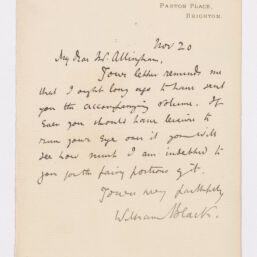 PASTON PLACE,
BRIGHTON.
Nov 20
My dear Mr. Allingham,
Your letter reminds me
that I ought long ago to have sent
you the accompanying volume. If
Ever you should have leisure to
run your Eye over it you will
see how much I am indebted to
you for the fairy portions of it.
Yours very faithfully
William Black.